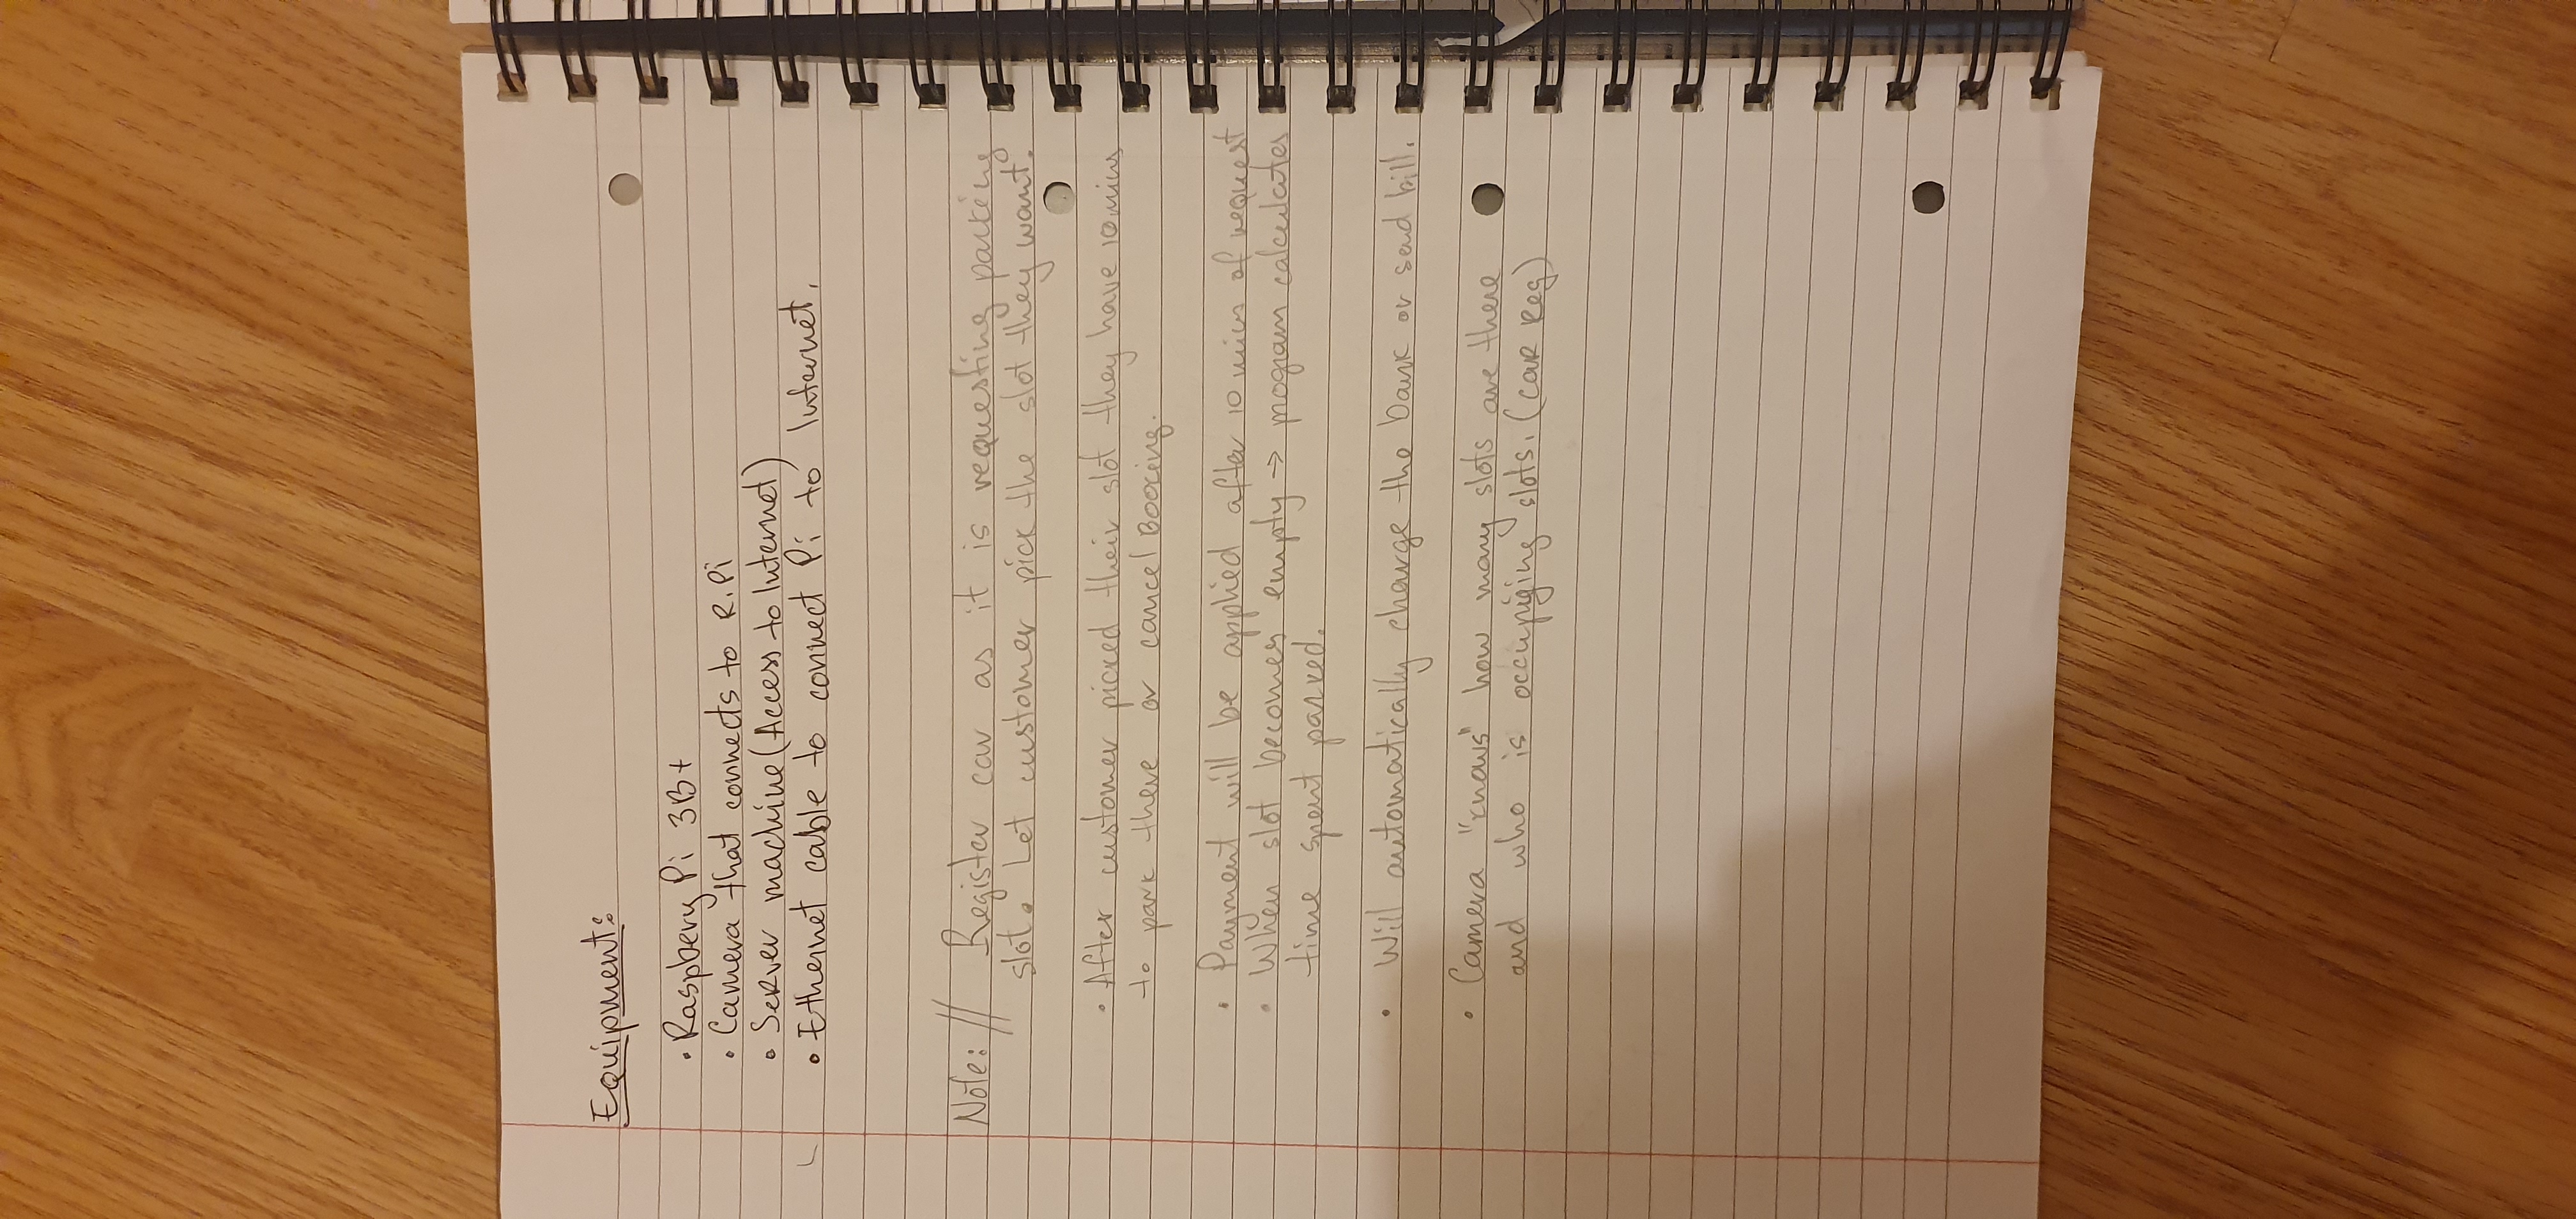 Equipment:
• Raspbery Pi 3B+
• Camera that connects to R.Pi
• Server machine (Access to Internet)
• Ethernet cable to connect Pi to Internet.
Note: // Register car as it is requesting parking
slot. Let customer pick the slot they want.
• After customer picked their slot they have 10 mins
to park there or cancel Booking.
• Payment will be applied after 10 mins of request
• When slot becomes empty → program calculates
time spent parked.
• Will automatically charge the bank or send bill.
• Camera "knows" how many slots are there
and who is occupiging slots. (CAR Reg)